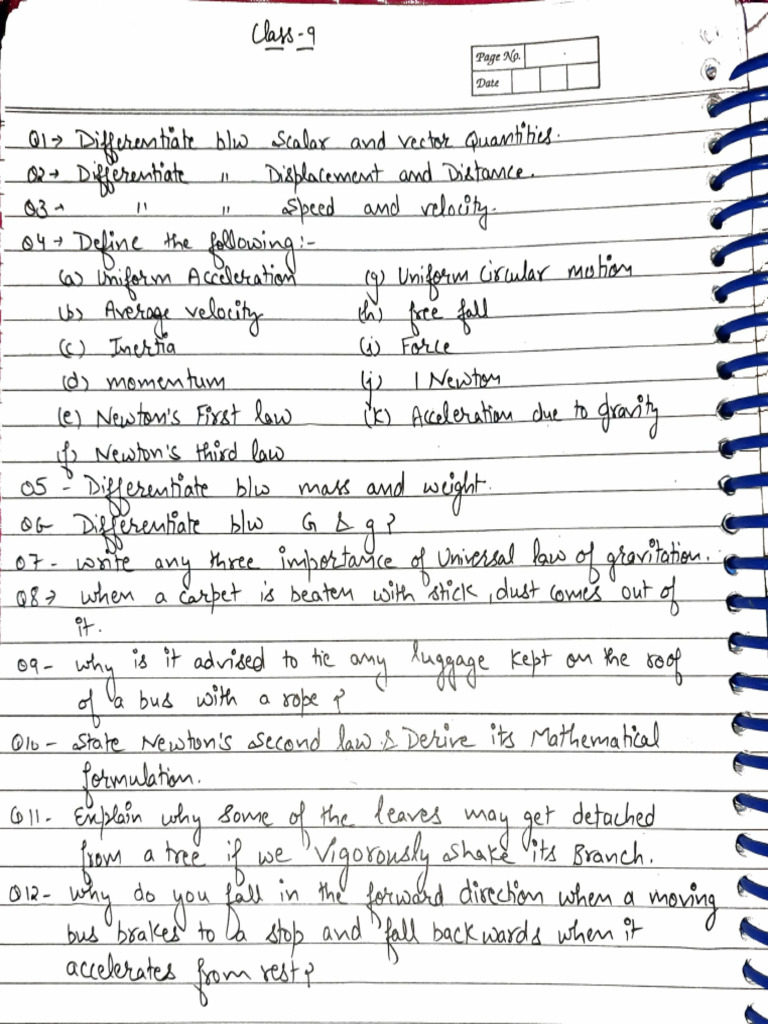 Class-9
Page No.
Date
Q1→ Differentiate b/w Scalar and vector Quantities.
Q2→ Differentiate " Displacement and Distance.
Q3→ " " Speed and velocity.
Q4→ Define the following:-
(a) Uniform Acceleration (g) Uniform Circular motion
(b) Average velocity (h) free fall
(c) Inertia (i) Force
(d) momentum (j) 1 Newton
(e) Newton's First law (k) Acceleration due to gravity
(f) Newton's third law
Q5 - Differentiate b/w mass and weight.
Q6- Differentiate b/w G & g?
Q7- write any three importance of Universal law of gravitation.
Q8→ when a carpet is beaten with stick, dust comes out of
it.
Q9- why is it advised to tie any luggage kept on the roof
of a bus with a rope?
Q10- State Newton's second law & Derive its Mathematical
formulation.
Q11- Explain why some of the leaves may get detached
from a tree if we vigorously shake its Branch.
Q12- why do you fall in the forward direction when a moving
bus brakes to a stop and fall backwards when it
accelerates from rest?